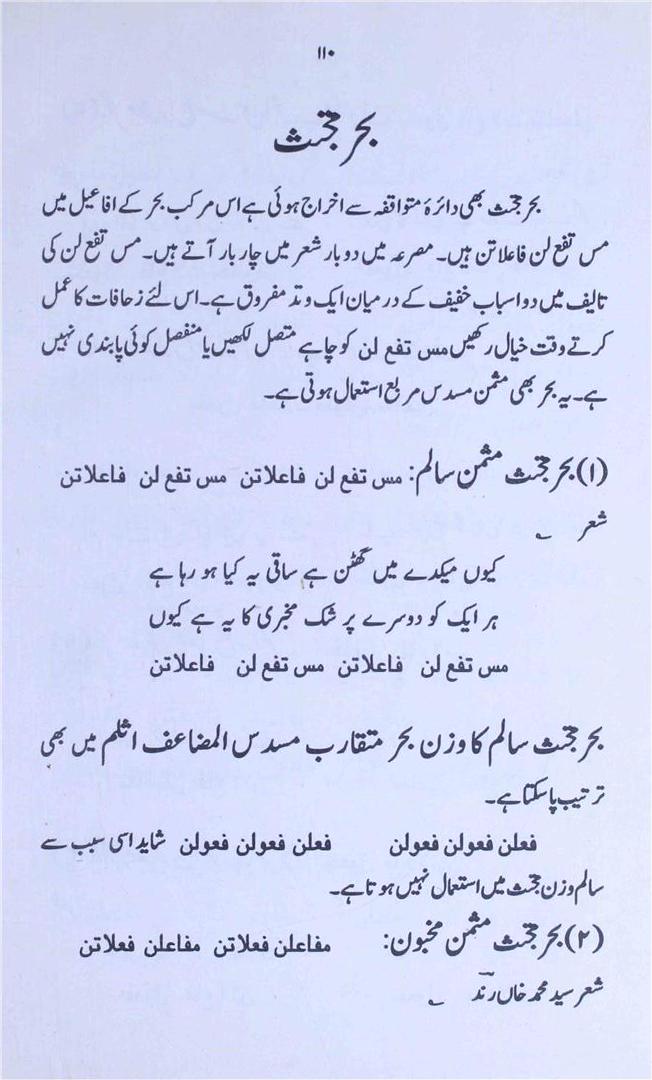 ۱۱۰
بحر مجتث
بحر مجتث بھی دائرۂ متوافقہ سے اخراج ہوئی ہے اس مرکب بحر کے افاعیل میں
مس تفع لن فاعلاتن ہیں۔ مصرعہ میں دو بار شعر میں چار بار آتے ہیں۔ مس تفع لن کی
تالیف میں دو اسباب خفیف کے درمیان ایک وتد مفروق ہے۔ اس لئے زحافات کا عمل
کرتے وقت خیال رکھیں مس تفع لن کو چاہے متصل لکھیں یا منفصل کوئی پابندی نہیں
ہے۔ یہ بحر بھی مثمن مسدس مربع استعمال ہوتی ہے۔
(۱) بحر مجتث مثمن سالم: مس تفع لن فاعلاتن مس تفع لن فاعلاتن
شعر
کیوں میکدے میں گھٹن ہے ساقی یہ کیا ہو رہا ہے
ہر ایک کو دوسرے پر شک مخبری کا یہ ہے کیوں
مس تفع لن فاعلاتن مس تفع لن فاعلاتن
بحر مجتث سالم کا وزن بحر متقارب مسدس المضاعف اثلم میں بھی
ترتیب پا سکتا ہے۔
فعلن فعولن فعولن فعلن فعولن فعولن شاید اسی سبب سے
سالم وزن مجتث میں استعمال نہیں ہوتا ہے۔
(۲) بحر مجتث مثمن مخبون: مفاعلن فعلاتن مفاعلن فعلاتن
شعر سید محمد خاں رند